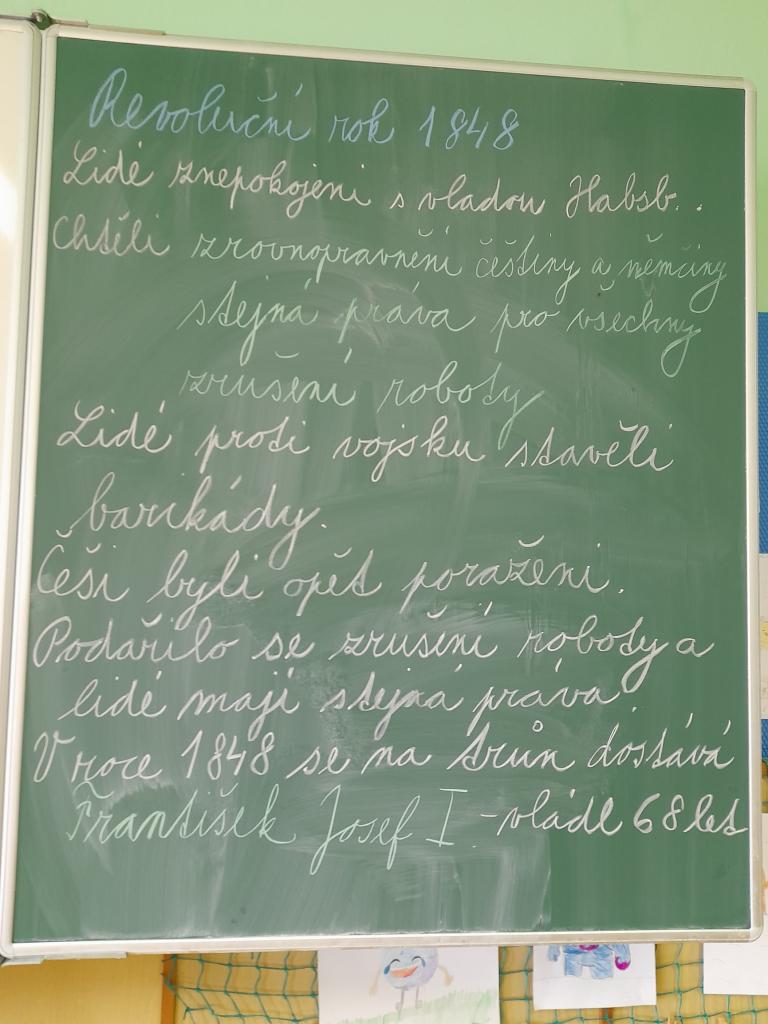 Revoluční rok 1848
Lidé znepokojeni s vladou Habsb..
Chtěli zrovnopravnění češtiny a němčiny
stejná práva pro všechny
zrušení roboty
Lidé proti vojsku stavěli
barikády.
Češi byli opět poraženi.
Podařilo se zrušení roboty a
lidé mají stejná práva.
V roce 1848 se na trůn dostává
František Josef I. - vládl 68 let